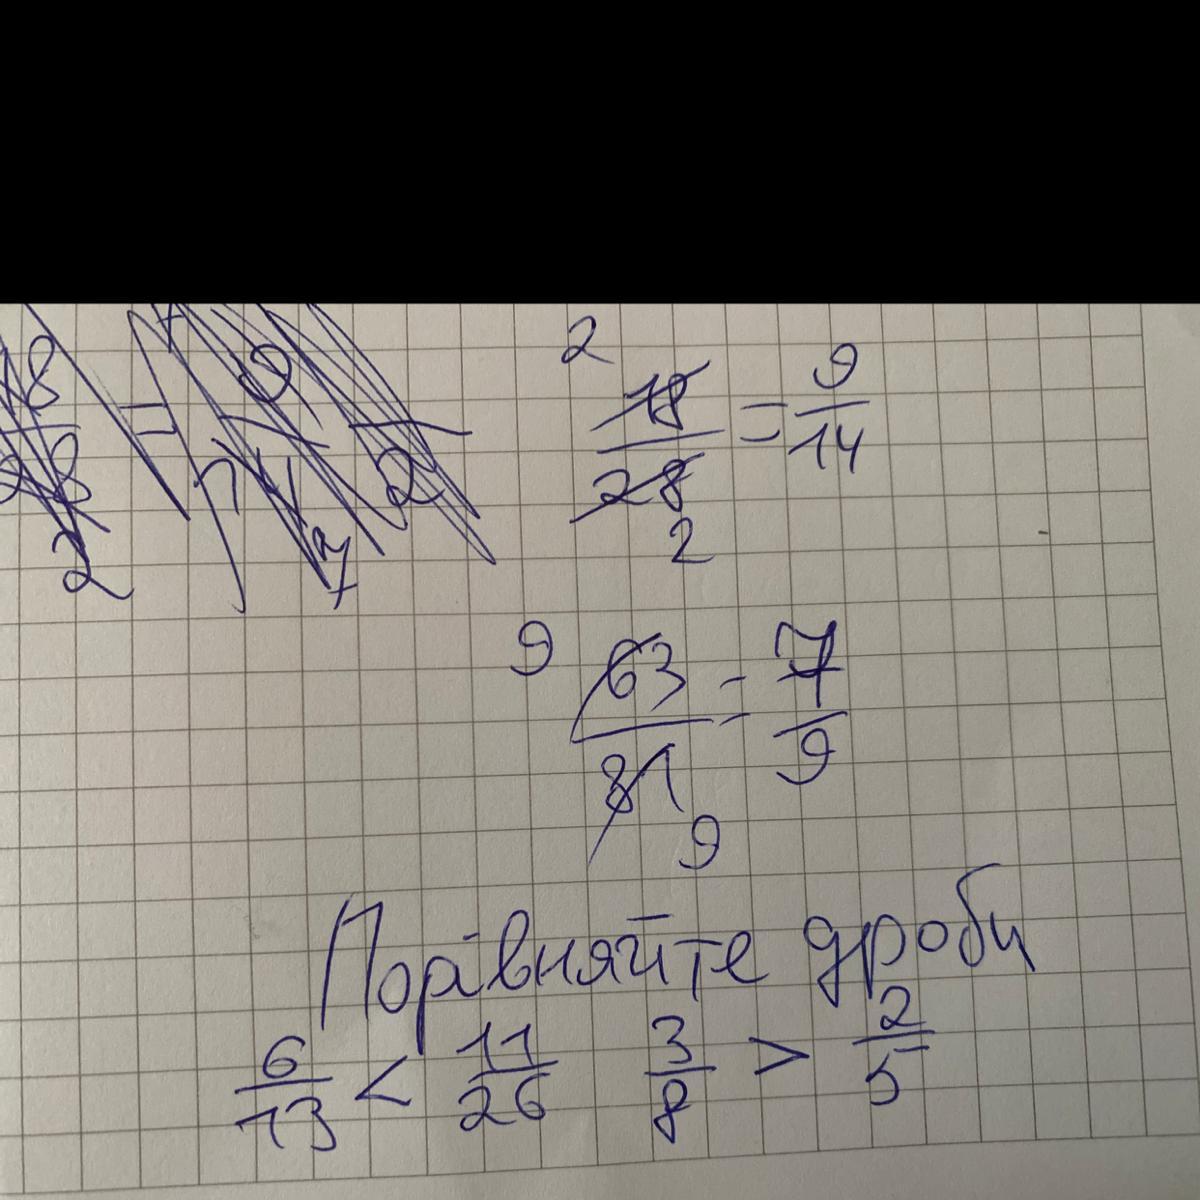 2
18/28 = 9/14
2
9 63/81 = 7/9
9
Порівняйте дроби
6/13 < 11/26 3/8 > 2/5